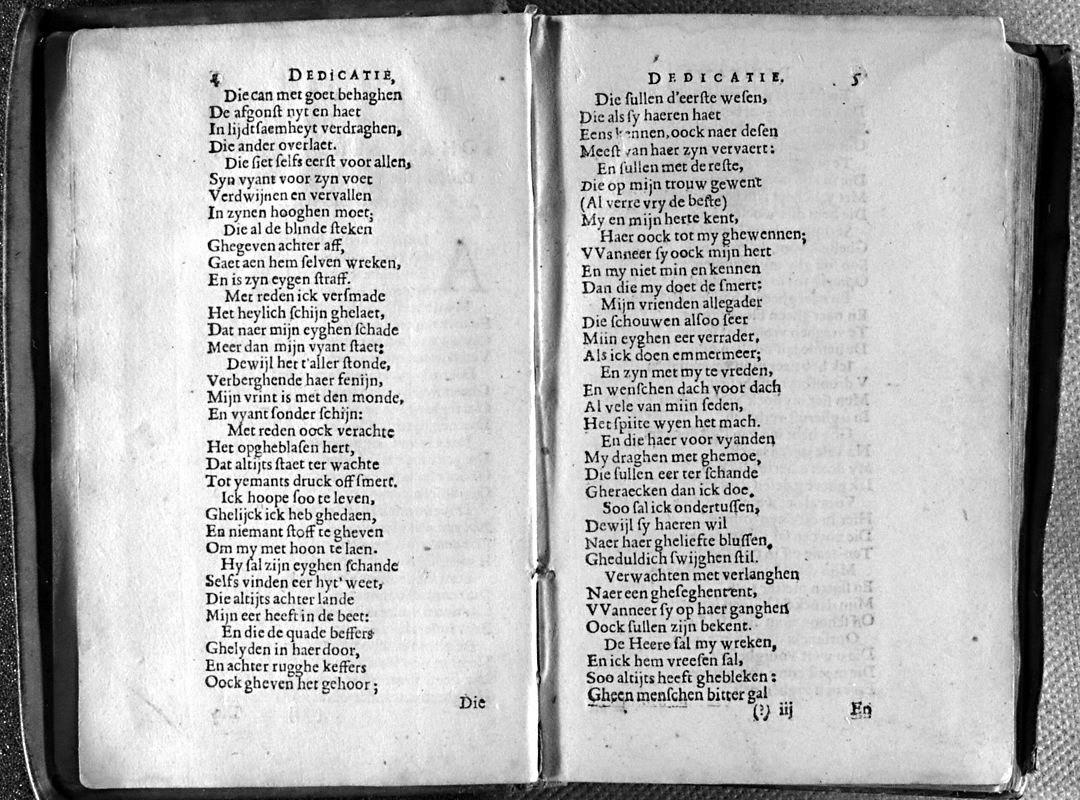 4 DEDICATIE,
Die can met goet behaghen
De afgonſt nyt en haet
In lijdtſaemheyt verdraghen,
Die ander overlaet.
Die ſiet ſelfs eerſt voor allen,
Syn vyant voor zyn voet
Verdwijnen en vervallen
In zynen hooghen moet;
Die al de blinde ſteken
Ghegeven achter aff,
Gaet aen hem ſelven wreken,
En is zyn eygen ſtraff.
Met reden ick verſmade
Het heylich ſchijn ghelaet,
Dat naer mijn eyghen ſchade
Meer dan mijn vyant ſtaet:
Dewijl het t'aller ſtonde,
Verberghende haer fenijn,
Mijn vrint is met den monde,
En vyant ſonder ſchijn:
Met reden oock verachte
Het opgheblaſen hert,
Dat altijts ſtaet ter wachte
Tot yemants druck off ſmert.
Ick hoope ſoo te leven,
Ghelijck ick heb ghedaen,
En niemant ſtoff te gheven
Om my met hoon te laen.
Hy ſal zijn eyghen ſchande
Selfs vinden eer hyt' weet,
Die altijts achter lande
Mijn eer heeft in de beet:
En die de quade beffers
Ghelyden in haer door,
En achter rugghe keffers
Oock gheven het gehoor;
Die
DEDICATIE. 5
Die ſullen d'eerſte weſen,
Die als ſy haeren haet
Eens kennen, oock naer deſen
Meeſt van haer zyn vervaert:
En ſullen met de reſte,
Die op mijn trouw gewent
(Al verre vry de beſte)
My en mijn herte kent,
Haer oock tot my ghewennen;
VVanneer ſy oock mijn hert
En my niet min en kennen
Dan die my doet de ſmert:
Mijn vrienden allegader
Die ſchouwen alſoo ſeer
Miin eyghen eer verrader,
Als ick doen emmermeer;
En zyn met my te vreden,
En wenſchen dach voor dach
Al vele van miin ſeden,
Het ſpiite wyen het mach.
En die haer voor vyanden
My draghen met ghemoe,
Die ſullen eer ter ſchande
Gheraecken dan ick doe.
Soo ſal ick ondertuſſen,
Dewijl ſy haeren wil
Naer haer ghelieſte bluſſen,
Gheduldich ſwijghen ſtil.
Verwachten met verlanghen
Naer een gheſeghent ent,
VVanneer ſy op haer ganghen
Oock ſullen zijn bekent.
De Heere ſal my wreken,
En ick hem vreeſen ſal,
Soo altijts heeft ghebleken:
Gheen menſchen bitter gal
(?) iij En